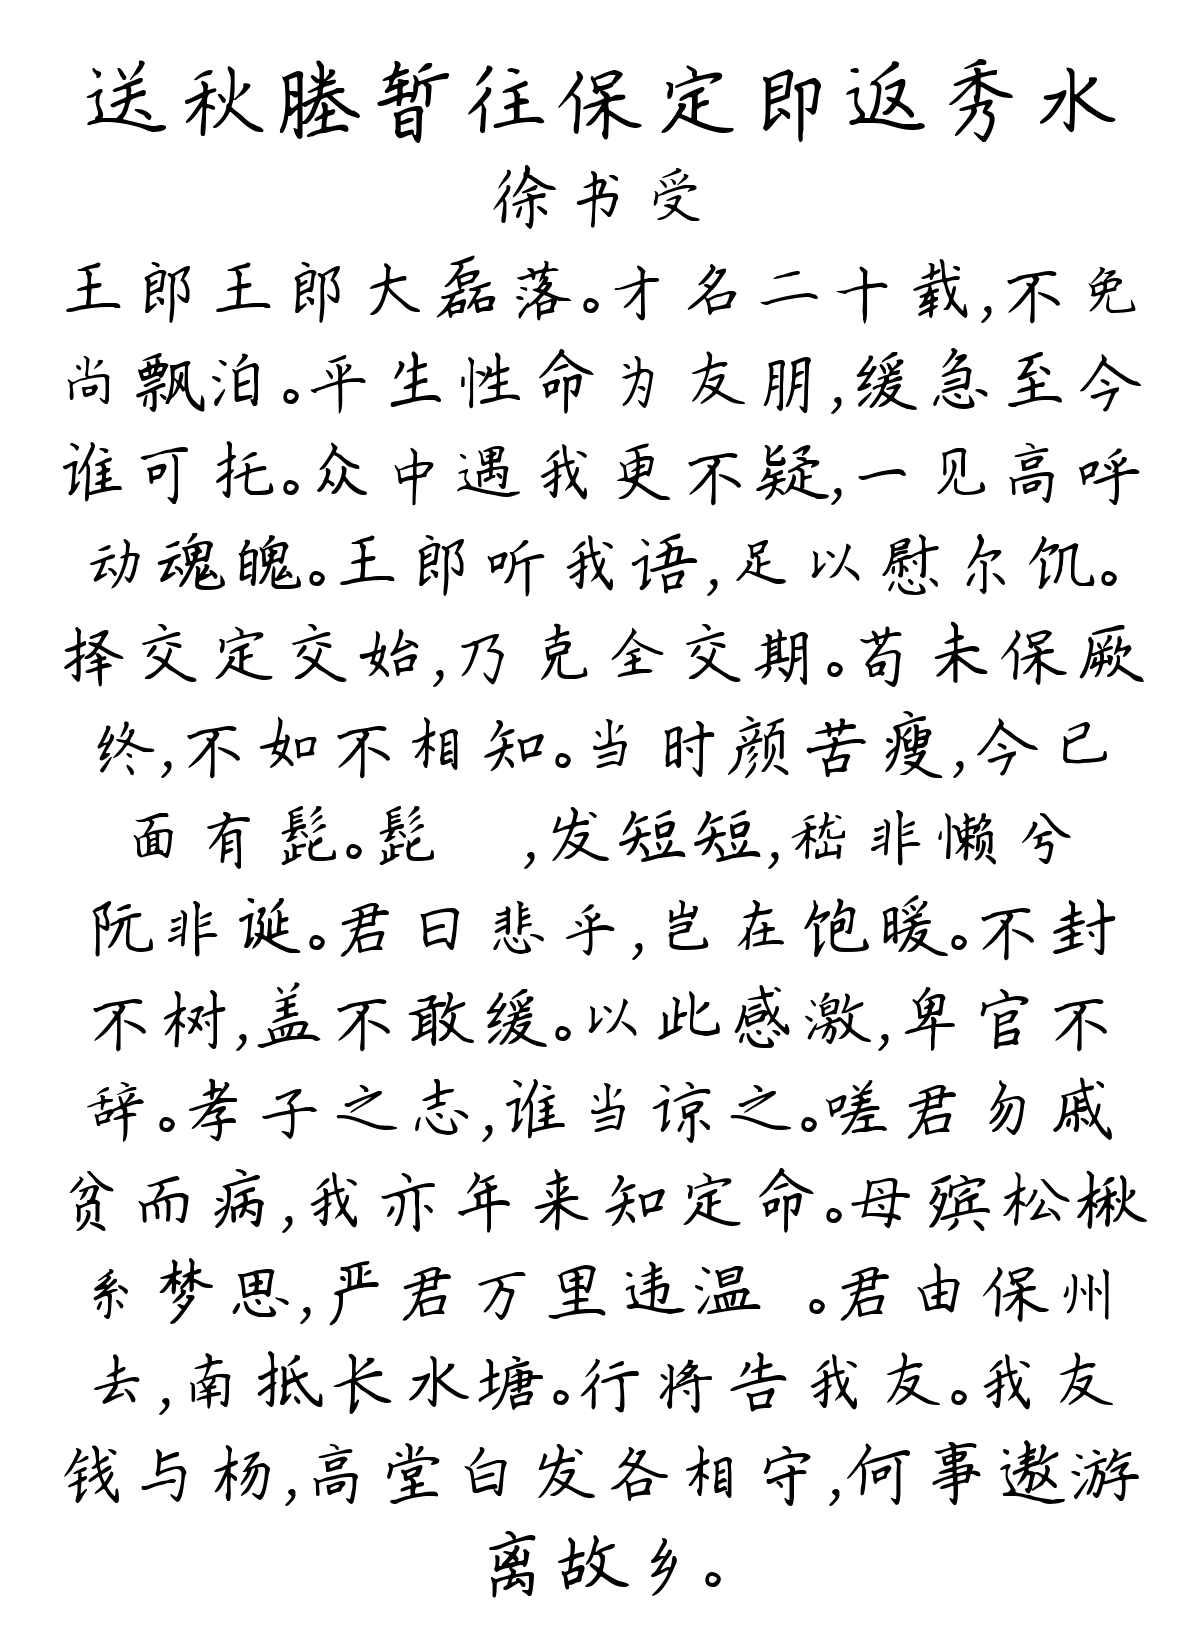 送秋塍暂往保定即返秀水
徐书受
王郎王郎大磊落。才名二十载,不免
尚飘泊。平生性命为友朋,缓急至今
谁可托。众中遇我更不疑,一见高呼
动魂魄。王郎听我语,足以慰尔饥。
择交定交始,乃克全交期。苟未保厥
终,不如不相知。当时颜苦瘦,今已
面有髭。髭 ,发短短,嵇非懒兮
阮非诞。君曰悲乎,岂在饱暖。不封
不树,盖不敢缓。以此感激,卑官不
辞。孝子之志,谁当谅之。嗟君勿戚
贫而病,我亦年来知定命。母殡松楸
系梦思,严君万里违温 。君由保州
去,南抵长水塘。行将告我友。我友
钱与杨,高堂白发各相守,何事遨游
离故乡。